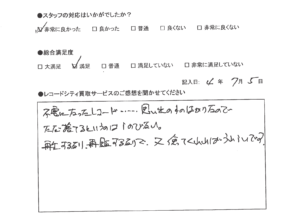 ●スタッフの対応はいかがでしたか？
●非常に良かった ○良かった ○普通 ○良くない ○非常に良くない
●総合満足度
○大満足 ○満足 ○普通 ○満足していない ○非常に満足していない
記入日: 4年 7月 5日
●レコードシティ買取サービスのご感想を聞かせてください
不要になったレコード……思い出のものばかりなので
ただ捨てるというのは忍びない。